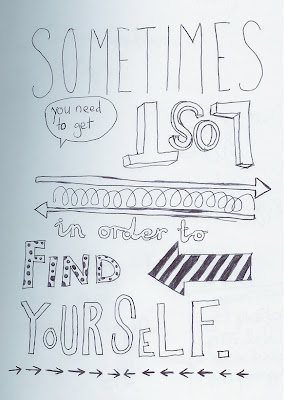 SOMETIMES
you need
to get
LOST
in order to
FIND
YOURSELF.